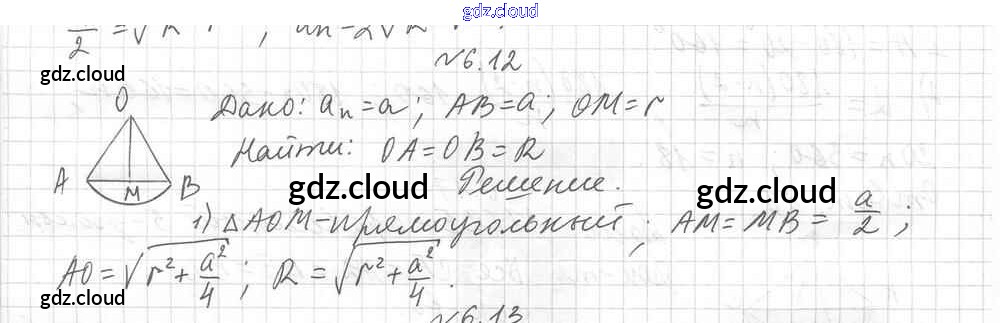 gdz.cloud
/2 = √R² ; aₙ = 2√R
№6.12
gdz.cloud
O
Дано: aₙ = a; AB = a; OM = r
Найти: OA = OB = R
A M B
gdz.cloud Решение. gdz.cloud
1) △AOM - прямоугольный; AM = MB = a/2;
AO = √(r² + a²/4); R = √(r² + a²/4).
gdz.cloud gdz.cloud gdz.cloud
№6.13